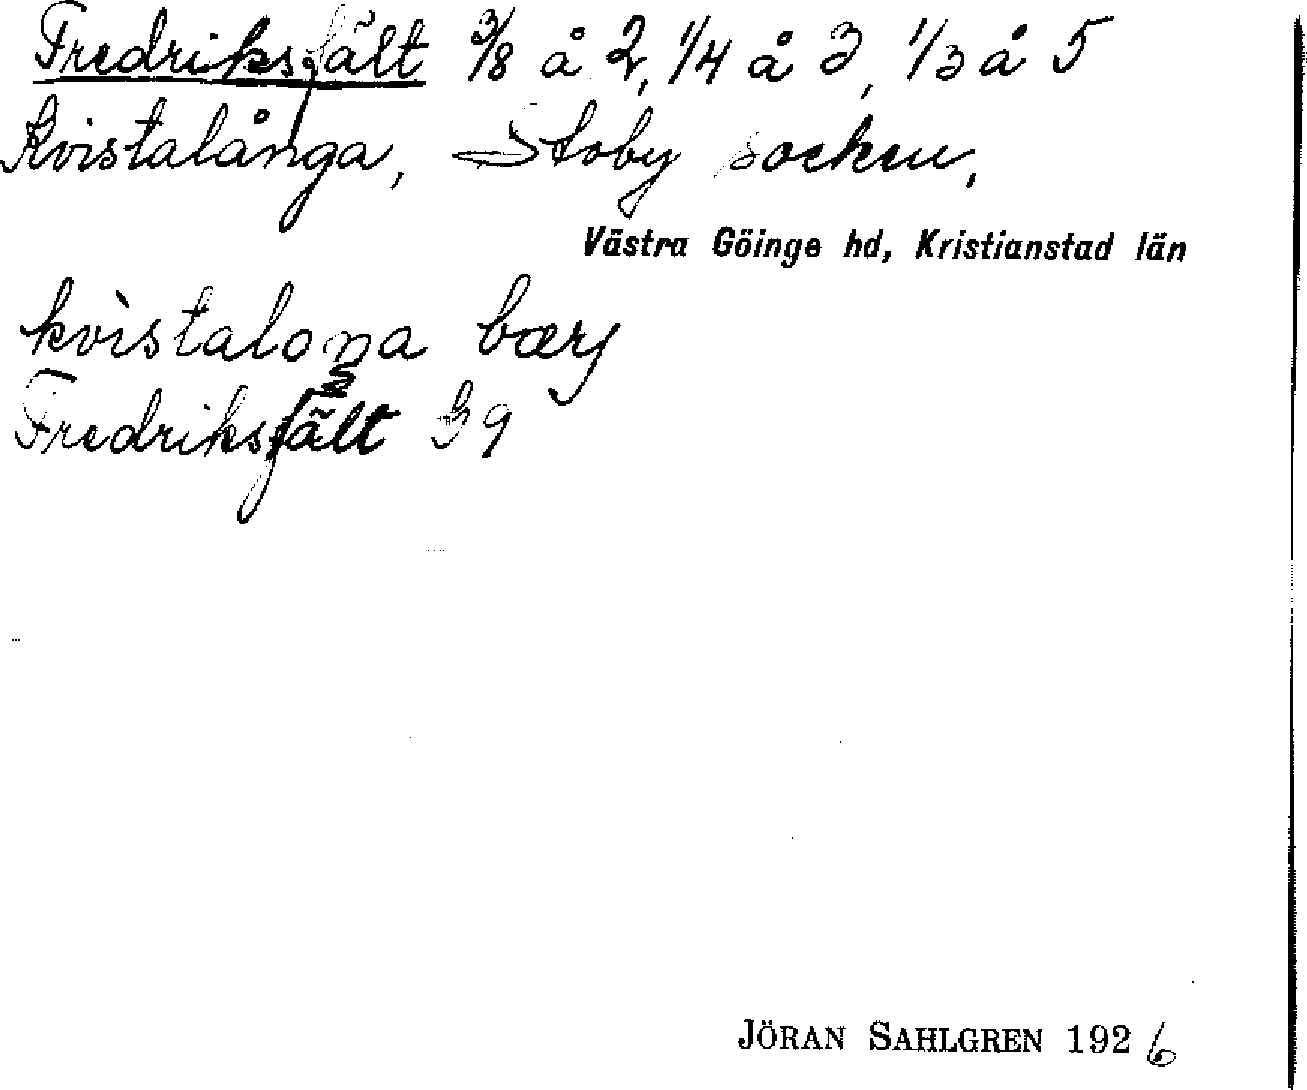 Fredriksfält 3/8 å 2, 1/4 å 3, 1/3 å 5
Kvistalånga, Stoby socken,
Västra Göinge hd, Kristianstad län
kvìstaloŋa bærj
Fredriksfält G9
JÖRAN SAHLGREN 1926